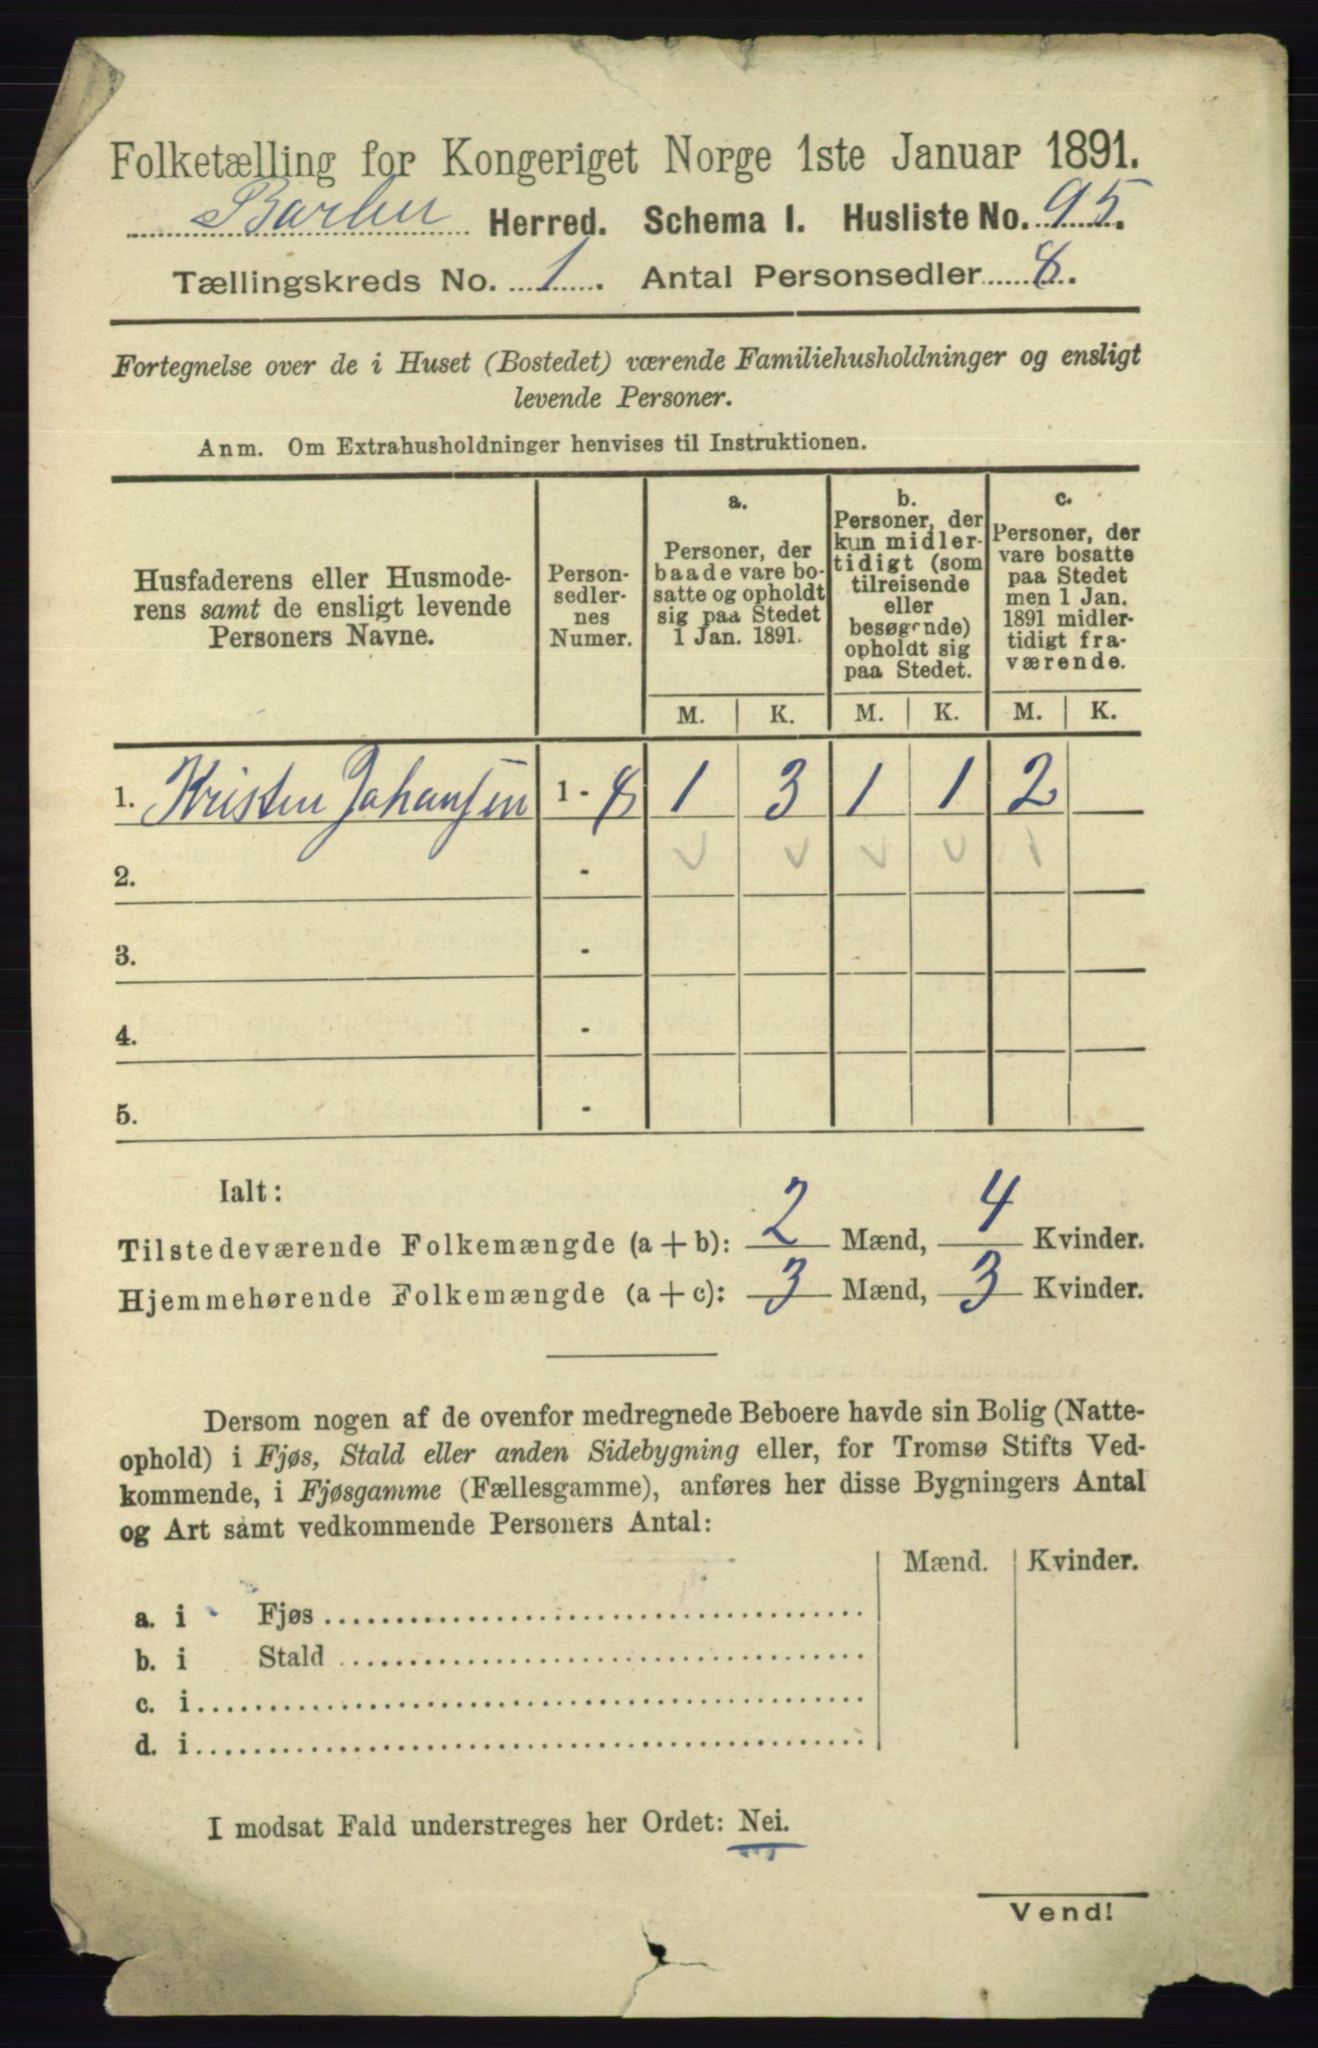 Folketælling for Kongeriget Norge 1ste Januar 1891.
Barbu Herred. Schema I. Husliste No. 95.
Tællingskreds No. 1. Antal Personsedler 8.
Fortegnelse over de i Huset (Bostedet) værende Familiehusholdninger og ensligt
levende Personer.
Anm. Om Extrahusholdninger henvises til Instruktionen.
Husfaderens eller Husmode-
rens samt de ensligt levende
Personers Navne.
Person-
sedler-
nes
Numer.
a.
Personer, der
baade vare bo-
satte og opholdt
sig paa Stedet
1 Jan. 1891.
b.
Personer, der
kun midler-
tidigt (som
tilreisende
eller
besøgende)
opholdt sig
paa Stedet.
c.
Personer, der
vare bosatte
paa Stedet
men 1 Jan.
1891 midler-
tidigt fra-
værende.
M. K. M. K. M. K.
1. Kristen Johansen 1 - 8 1 3 1 1 2
2. -
3. -
4. -
5. -
Ialt:
Tilstedeværende Folkemængde (a + b): 2 Mænd, 4 Kvinder.
Hjemmehørende Folkemængde (a + c): 3 Mænd, 3 Kvinder.
Dersom nogen af de ovenfor medregnede Beboere havde sin Bolig (Natte-
ophold) i Fjøs, Stald eller anden Sidebygning eller, for Tromsø Stifts Ved-
kommende, i Fjøsgamme (Fællesgamme), anføres her disse Bygningers Antal
og Art samt vedkommende Personers Antal:
Mænd. Kvinder.
a. i Fjøs
b. i Stald
c. i
d. i
I modsat Fald understreges her Ordet: Nei.
Vend!